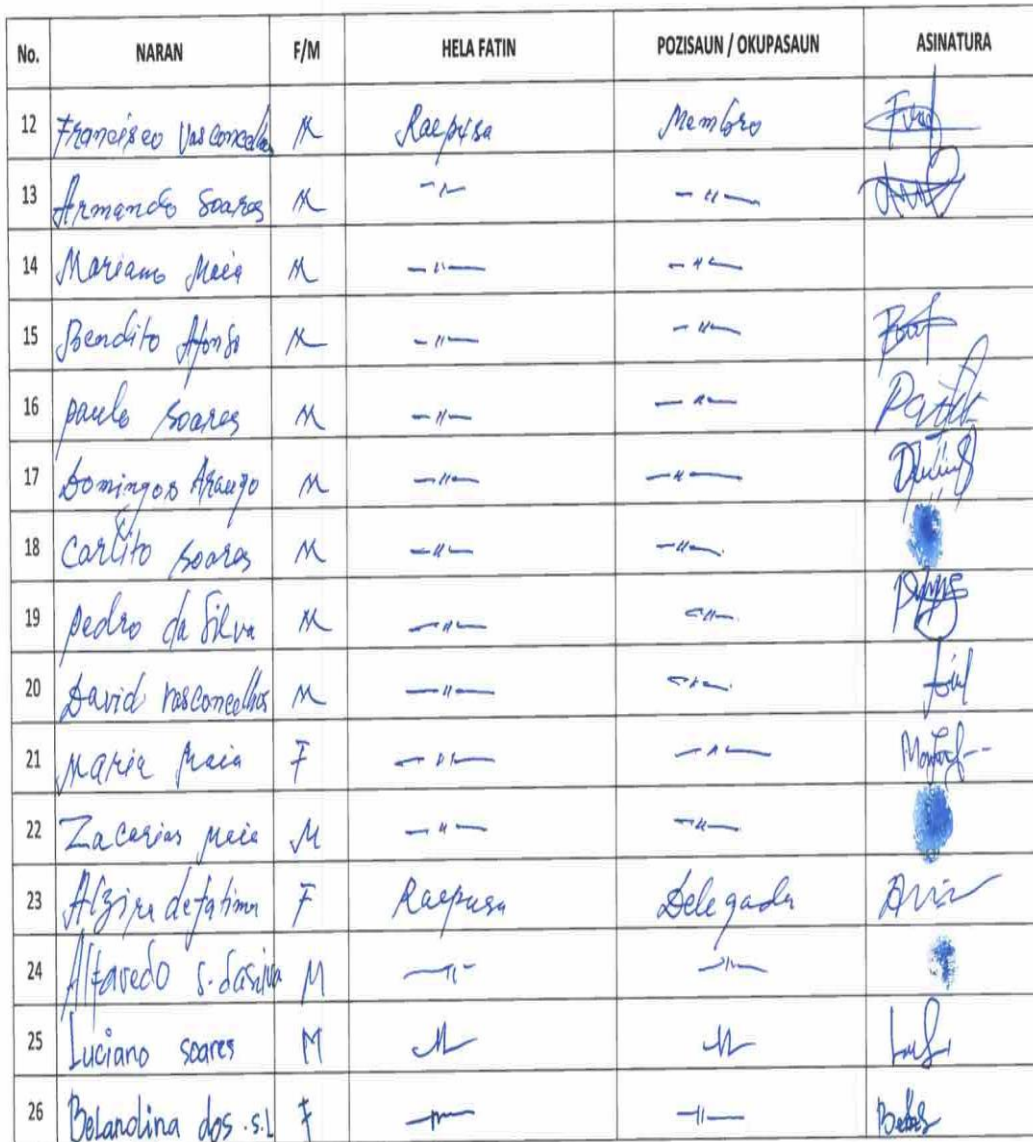 No. NARAN F/M HELA FATIN POZISAUN / OKUPASAUN ASINATURA
12 Francisco Vasconcelhos M Raepusa Membro
13 Armando Soares M -"- -"-
14 Mariano Maia M -"- -"-
15 Bendito Afonso M -"- -"-
16 paulo soares M -"- -"-
17 Domingos Araujo M -"- -"-
18 Carlito soares M -"- -"-
19 pedro da Silva M -"- -"-
20 David vasconcelhos M -"- -"-
21 Maria Maia F -"- -"-
22 Zacarias Maia M -"- -"-
23 Alzira de fatima F Raepusa Delegada
24 Alfavedo S. dasilva M -"- -"-
25 Luciano soares M -"- -"-
26 Belandina dos .S.L F -"- -"-